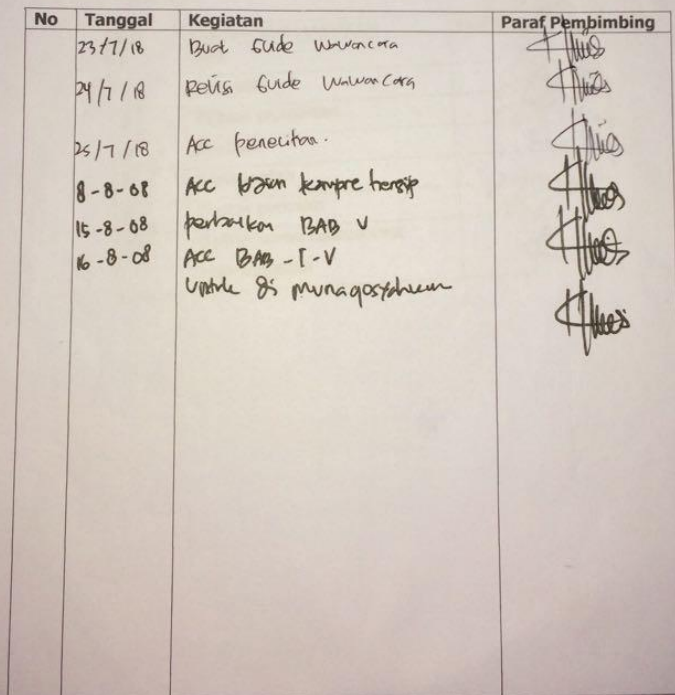 No Tanggal Kegiatan Paraf Pembimbing
23/7/18 Buat Guide wawancara
24/7/18 Revisi Guide wawancara
25/7/18 Acc penelitian.
8-8-08 Acc komprehensip
15-8-08 perbaikan BAB V
16-8-08 Acc BAB-I-V
Untuk di munaqosyahkan